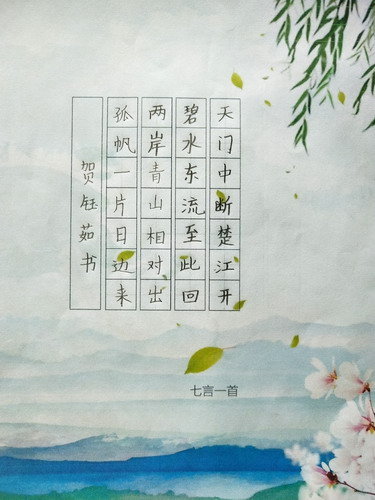 天门中断楚江开
碧水东流至此回
两岸青山相对出
孤帆一片日边来
贺钰茹书
七言一首